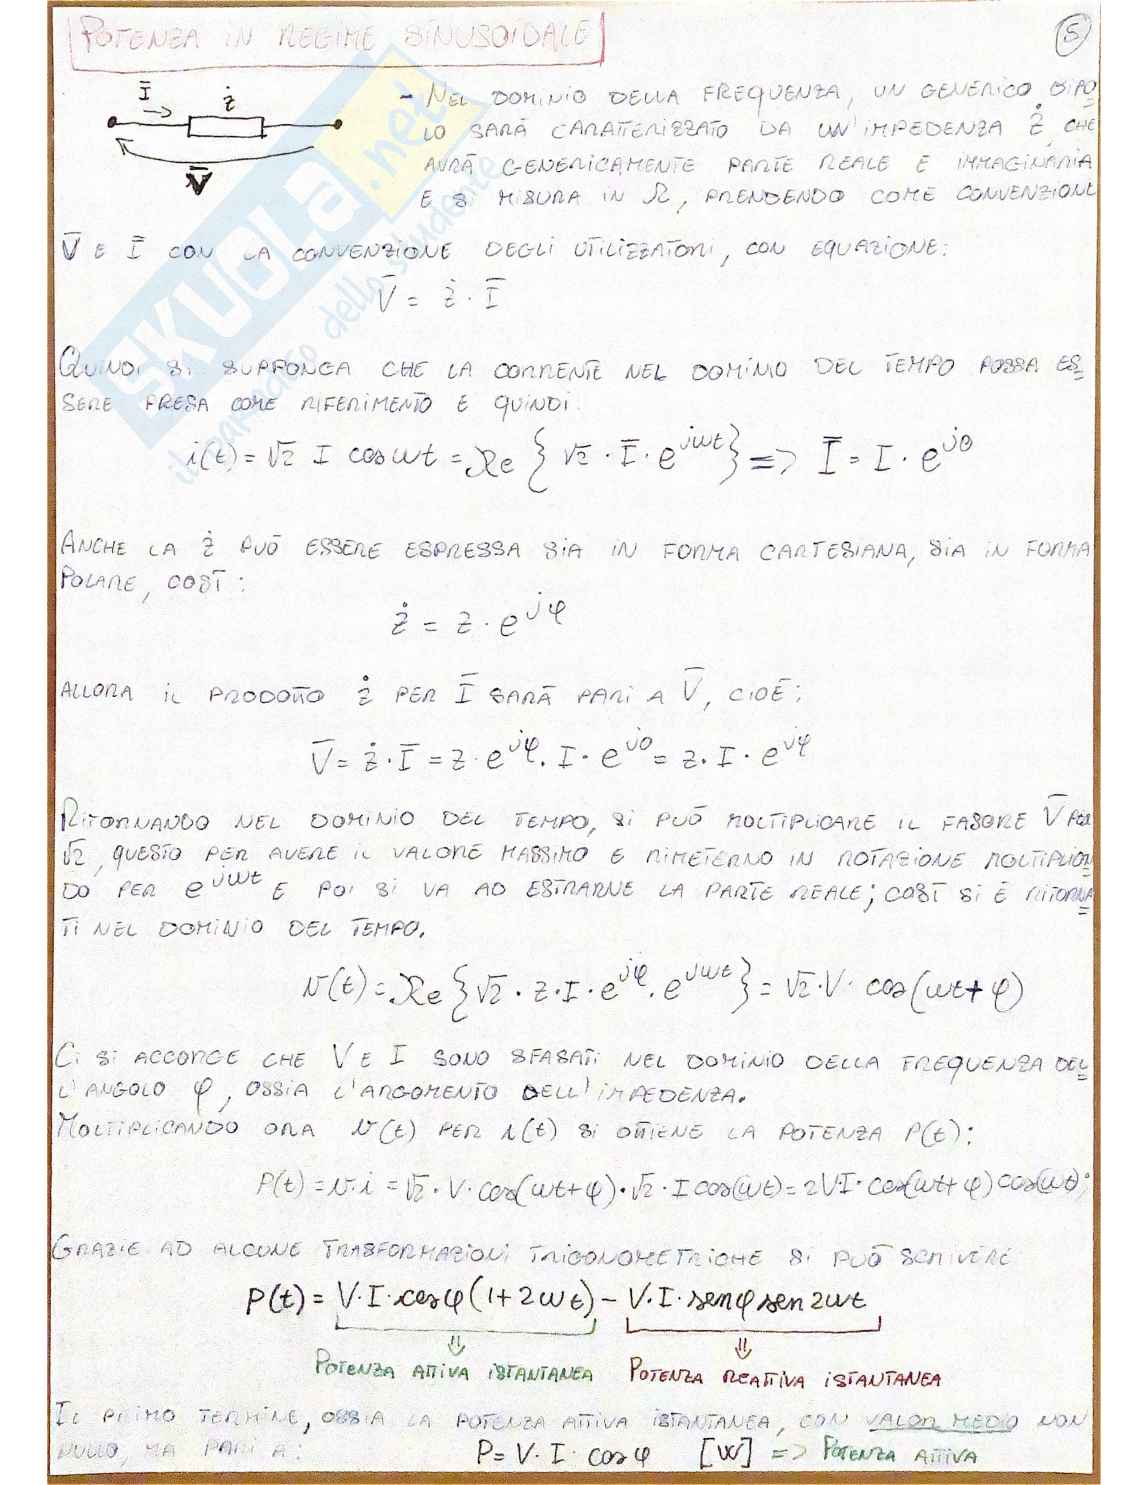 POTENZA IN REGIME SINUSOIDALE
5
Ī Ż
V̄
- NEL DOMINIO DELLA FREQUENZA, UN GENERICO BIPO
LO SARÀ CARATTERIZZATO DA UN'IMPEDENZA Ż, CHE
AVRÀ GENERICAMENTE PARTE REALE E IMMAGINARIA
E SI MISURA IN Ω, PRENDENDO COME CONVENZIONE
V̄ E Ī CON LA CONVENZIONE DEGLI UTILIZZATORI, CON EQUAZIONE:
V̄ = Ż · Ī
QUINDI SI SUPPONGA CHE LA CORRENTE NEL DOMINIO DEL TEMPO POSSA ES
SERE PRESA COME RIFERIMENTO E QUINDI
i(t) = √2 I cos ωt = Re { √2 · Ī · e^jωt } => Ī = I · e^j0
ANCHE LA Ż PUÒ ESSERE ESPRESSA SIA IN FORMA CARTESIANA, SIA IN FORMA
POLARE, COSÌ :
Ż = Z · e^jφ
ALLORA IL PRODOTTO Ż PER Ī SARÀ PARI A V̄, CIOÈ :
V̄ = Ż · Ī = Z · e^jφ · I · e^j0 = Z · I · e^jφ
RITORNANDO NEL DOMINIO DEL TEMPO, SI PUÒ MOLTIPLICARE IL FASORE V̄ PER
√2, QUESTO PER AVERE IL VALORE MASSIMO E RIMETERNO IN ROTAZIONE MOLTIPLICAN
DO PER e^jωt E POI SI VA AD ESTRARNE LA PARTE REALE; COSÌ SI È RITORNA
TI NEL DOMINIO DEL TEMPO.
v(t) = Re { √2 · Z · I · e^jφ · e^jωt } = √2 · V · cos(ωt + φ)
CI SI ACCORGE CHE V E I SONO SFASATI NEL DOMINIO DELLA FREQUENZA DEL
L'ANGOLO φ, OSSIA L'ARGOMENTO DELL'IMPEDENZA.
MOLTIPLICANDO ORA v(t) PER i(t) SI OTTIENE LA POTENZA P(t) :
P(t) = v · i = √2 · V · cos(ωt + φ) · √2 · I cos(ωt) = 2VI · cos(ωt + φ) cos(ωt) ;
GRAZIE AD ALCUNE TRASFORMAZIONI TRIGONOMETRICHE SI PUÒ SCRIVERE
P(t) = V · I · cos φ (1 + 2ωt) – V · I · sen φ sen 2ωt
POTENZA ATTIVA ISTANTANEA POTENZA REATTIVA ISTANTANEA
IL PRIMO TERMINE, OSSIA LA POTENZA ATTIVA ISTANTANEA, CON VALOR MEDIO NON
NULLO, MA PARI A : P = V · I · cos φ [W] => POTENZA ATTIVA
SKUOLA.net
il paradiso dello studente